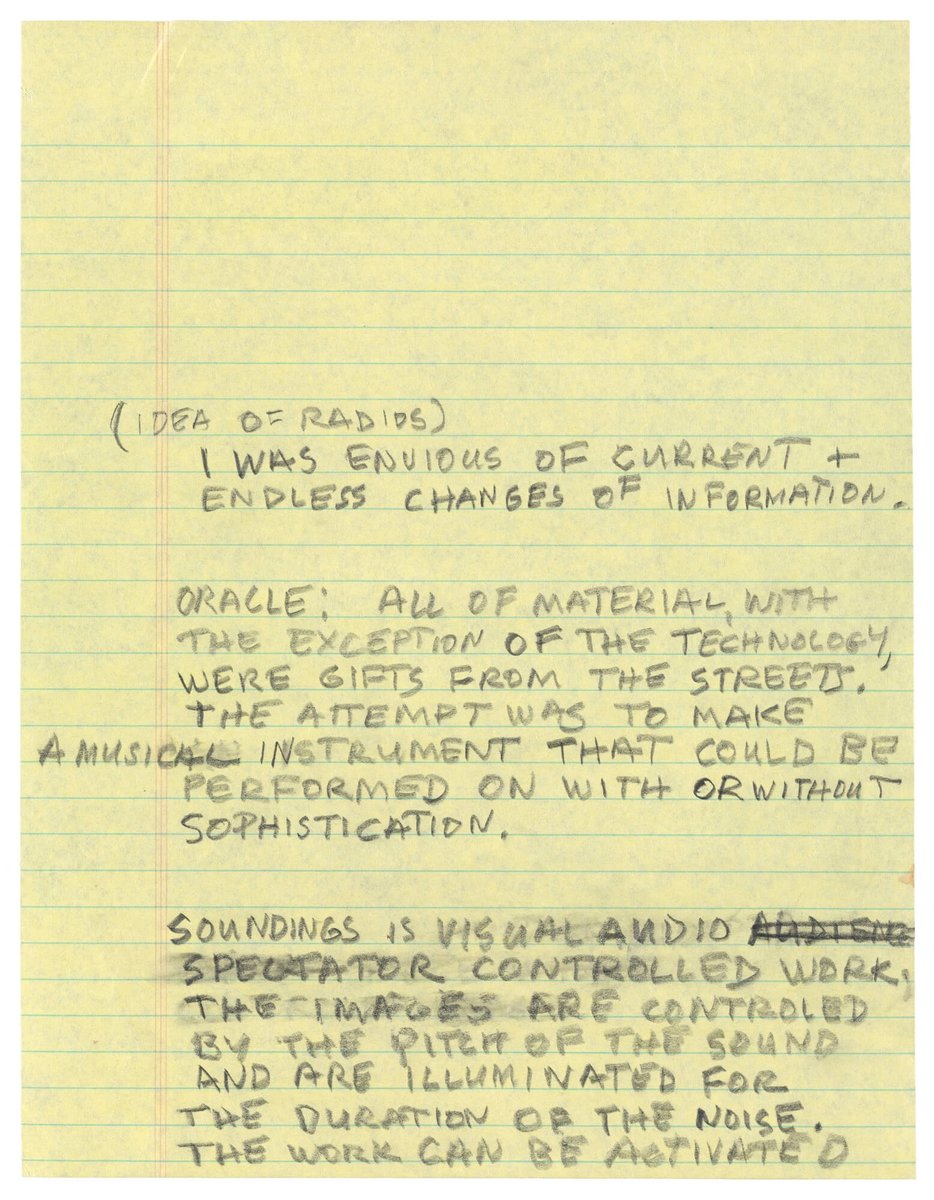 (IDEA OF RADIOS)
I WAS ENVIOUS OF CURRENT +
ENDLESS CHANGES OF INFORMATION.
ORACLE: ALL OF MATERIAL, WITH
THE EXCEPTION OF THE TECHNOLOGY,
WERE GIFTS FROM THE STREETS.
THE ATTEMPT WAS TO MAKE
A MUSICAL INSTRUMENT THAT COULD BE
PERFORMED ON WITH OR WITHOUT
SOPHISTICATION.
SOUNDINGS IS VISUAL AUDIO
SPECTATOR CONTROLLED WORK,
THE IMAGES ARE CONTROLED
BY THE PITCH OF THE SOUND
AND ARE ILLUMINATED FOR
THE DURATION OF THE NOISE.
THE WORK CAN BE ACTIVATED